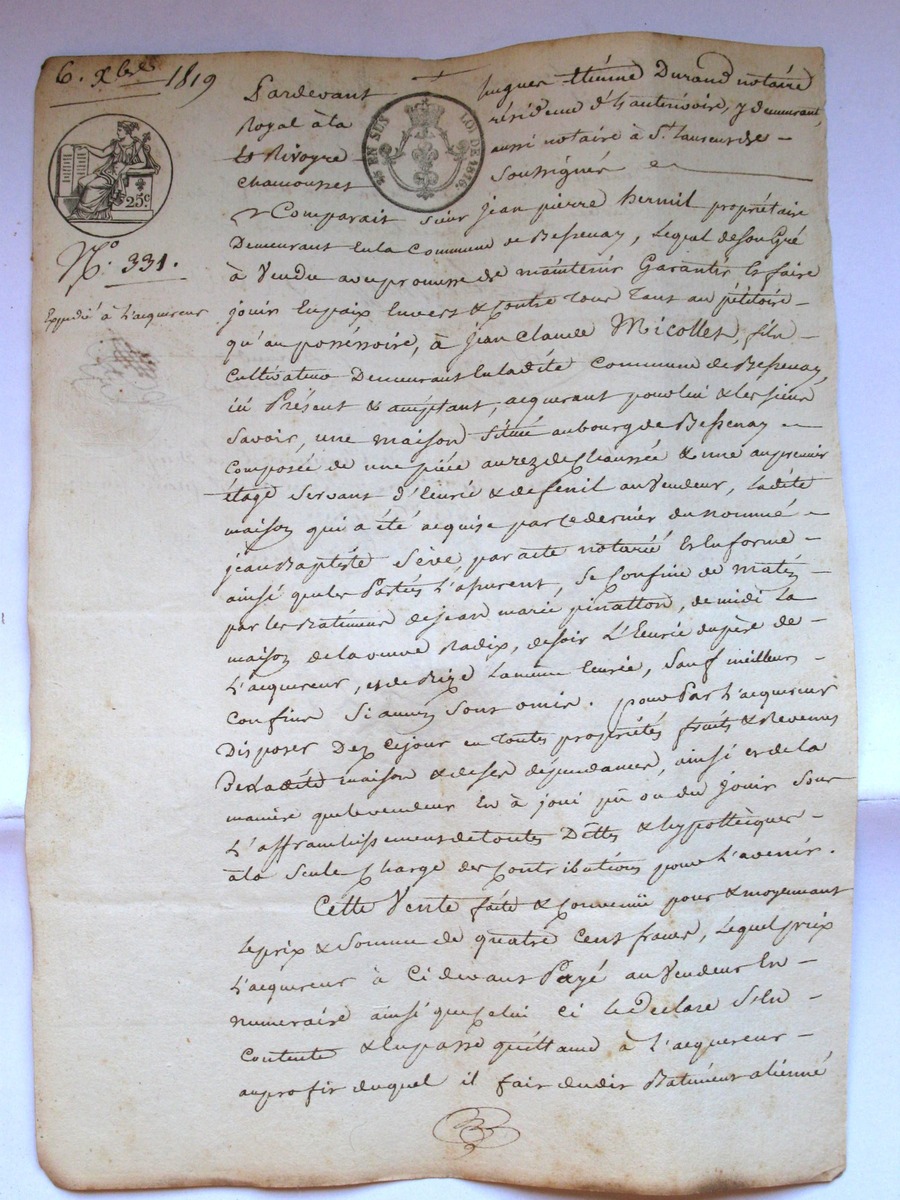 6. Xbre 1819
25c
No. 331.
Expédié à l'acquereur
25 EN SUS
LOI DE 1816.
Pardevant hugues étiénne Durand notaire
Royal à la résidence d'hauterivoire, y demeurant,
& Rivoyre aussi notaire à St. Laurent de
chamousset Soussignés
Comparait sieur jean pierre hermil propriétaire
Demeurant En la Commune de Bessenay, lequel de son Gré
à Vendu avec promesse de maintenir Garantir & faire
jouir En paix Envers & Contre tous tant au pétitoire
qu'au posséssoire, à jean Claude Micollet, fils
Cultivateur Demeurant En ladite Commune de Bessenay
ici Présent & acceptant, acquerant pour lui & les siens
Savoir, une maison Située au bourg de Bessenay
Composée de une piéce au rez de Chaussée & une au premier
étage servant d'Ecurie & de fenil au Vendeur, Ladite
maison qui a été acquise par ce dernier du nommé
jean Baptiste Séve par acte notarié En forme
ainsi que les Parties l'assurent, se Confine de matin
par les Batimens de jean marie pinatton, de midi La
maison de la veuve Radix, de soir L'Ecurie du père de
L'acquereur, et de Bize La même Ecurie, Sauf meilleurs
Confins Si aucuns Sont omis. pour Par L'acquereur
Disposer Dez Ce jour en toutes propriétés fruits & Revenus
De Ladite maison & de ses dépendances, ainsi et de la
maniere que le vendeur En à joui pû ou du jouir Sous
L'affranchissement de toutes Dêttes & hypotheques
à la Seule Charge des Contributions pour L'avenir.
Cétte Vente faite & Convenüe pour & moyennant
Le prix & Somme de quatre Cent francs, Lequel prix
L'acquereur à Ci devant Payé au Vendeur En
numeraire ainsi que Celui Ci le Déclare S'en
Contente & En passe quittance à L'acquereur
au profit duquel il fait dudit Batiment aliénné